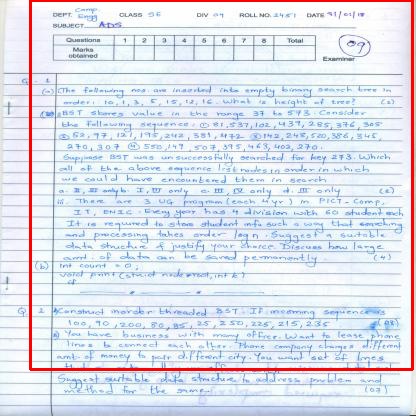 DEPT. Comp. Engg CLASS SE DIV 09 ROLL NO. 2451 DATE 31/01/18
SUBJECT ADS
Questions 1 2 3 4 5 6 7 8 Total
Marks obtained
09
Examiner
Q. 1
(a) The following nos. are inserted into empty binary search tree in
order: 10, 1, 3, 5, 15, 12, 16. What is height of tree? (2)
BST stores value in the range 37 to 573. Consider
the following sequence. ① 81, 537, 102, 439, 285, 376, 305
② 52, 97, 121, 195, 242, 381, 472 ③ 142, 248, 520, 386, 345
270, 307 ④ 550, 149, 507, 395, 463, 402, 270.
Suppose BST was unsuccessfully searched for key 273. Which
all of the above sequence list nodes in order in which
we could have encountered them in search
a. II, III only b. I, III only c. III, IV only d. III only (2)
iii. There are 3 UG program (each 4 yr) in PICT - Comp,
IT, EnTC. Every year has 4 division with 60 student each
It is required to store student info such a way that searching
and processing takes order log n. Suggest a suitable
data structure & justify your choice. Discuss how large
amt. of data can be saved permanently. (4)
(b) int count = 0;
void print (struct node *root, int k)
Q. 2 Construct inorder threaded BST. If incoming sequence is
100, 90, 200, 80, 85, 25, 250, 225, 215, 235
You have business with many office. Want to lease phone
lines to connect each other. Phone company charges different
amt of money to pair different city. You want set of lines
Suggest suitable data structure to address problem and
method for the same. (07)